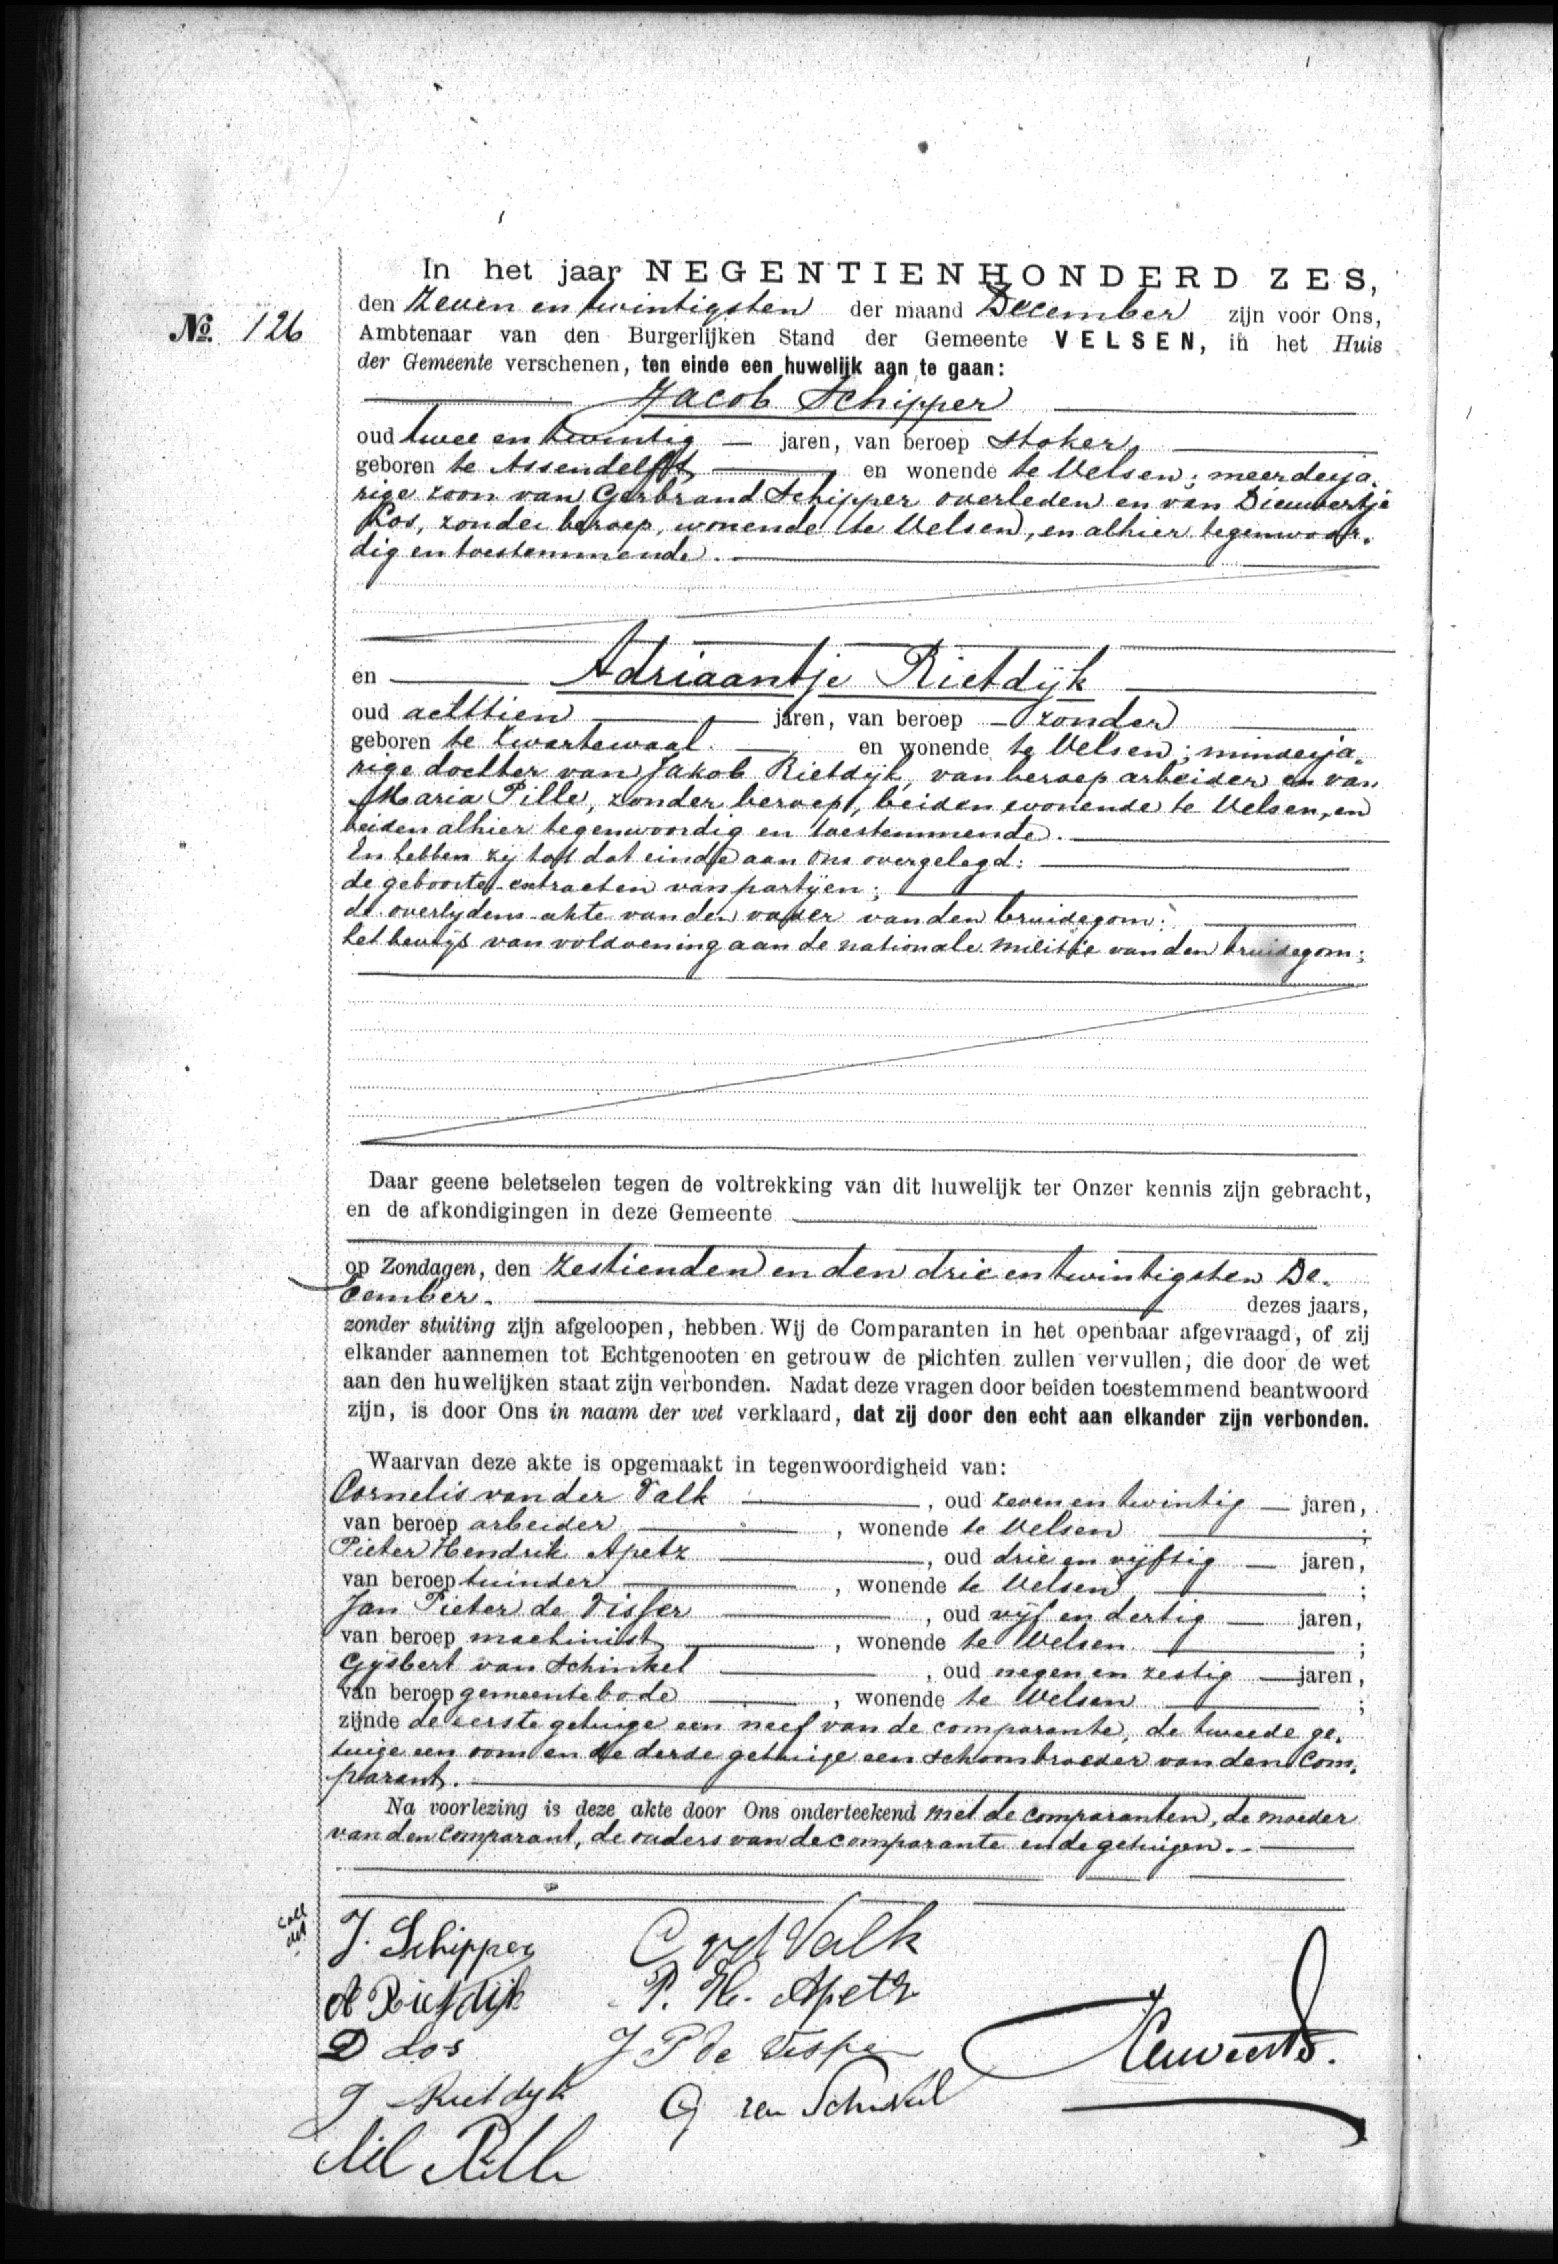 In het jaar NEGENTIENHONDERD ZES,
den zeven en twintigsten der maand December zijn voor Ons,
No. 126
Ambtenaar van den Burgerlijken Stand der Gemeente VELSEN, in het Huis
der Gemeente verschenen, ten einde een huwelijk aan te gaan:
Jacob Schipper
oud twee en twintig — jaren, van beroep stoker,
geboren te Assendelft en wonende te Velsen; meerderja-
rige zoon van Gerbrand Schipper overleden en van Dieuwertje
Los, zonder beroep, wonende te Velsen, en alhier tegenwoor-
dig en toestemmende.
en Adriaantje Rietdijk
oud achttien jaren, van beroep — zonder
geboren te Zwartewaal en wonende te Velsen; minderja-
rige dochter van Jakob Rietdijk, van beroep arbeider en van
Maria Pille, zonder beroep, beiden wonende te Velsen, en
beiden alhier tegenwoordig en toestemmende.
En hebben zij tot dat einde aan ons overgelegd:
de geboorte-extracten van partijen;
de overlijdens-akte van den vader van den bruidegom;
het bewijs van voldoening aan de nationale militie van den bruidegom;
Daar geene beletselen tegen de voltrekking van dit huwelijk ter Onzer kennis zijn gebracht,
en de afkondigingen in deze Gemeente
op Zondagen, den zestienden en den drie en twintigsten De-
cember. dezes jaars,
zonder stuiting zijn afgeloopen, hebben Wij de Comparanten in het openbaar afgevraagd, of zij
elkander aannemen tot Echtgenooten en getrouw de plichten zullen vervullen, die door de wet
aan den huwelijken staat zijn verbonden. Nadat deze vragen door beiden toestemmend beantwoord
zijn, is door Ons in naam der wet verklaard, dat zij door den echt aan elkander zijn verbonden.
Waarvan deze akte is opgemaakt in tegenwoordigheid van:
Cornelis van der Valk, oud zeven en twintig — jaren,
van beroep arbeider, wonende te Velsen;
Pieter Hendrik Apetz, oud drie en vijftig — jaren,
van beroep tuinder, wonende te Velsen;
Jan Pieter de Visser, oud vijf en dertig — jaren,
van beroep machinist, wonende te Velsen;
Gijsbert van Schinkel, oud negen en zestig — jaren,
van beroep gemeentebode, wonende te Velsen;
zijnde de eerste getuige een neef van de comparante, de tweede ge-
tuige een oom en de derde getuige een schoonbroeder van den com-
parant.
Na voorlezing is deze akte door Ons onderteekend met de comparanten, de moeder
van den comparant, de ouders van de comparante en de getuigen.
J. Schipper C vd Valk
A Rietdijk P. H. Apetz
D Los J P de Visser
J Rietdijk G van Schinkel
M Pille